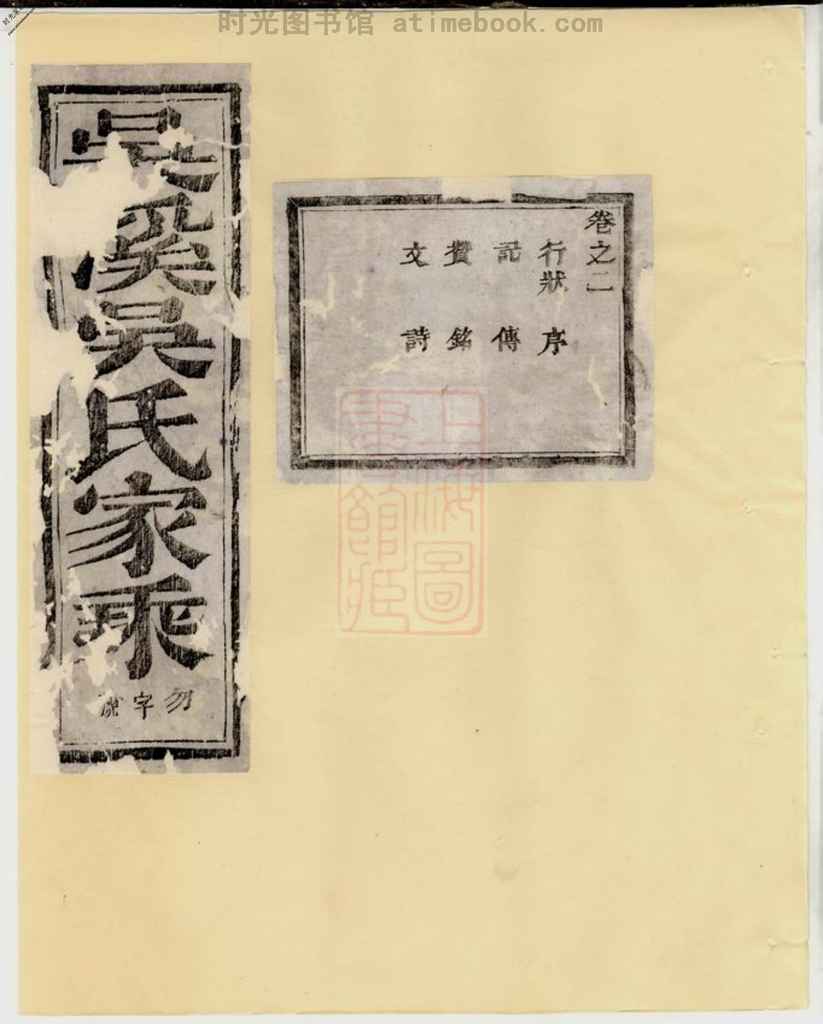 时光图书馆 atimebook.com
卷之二
行狀 序
記 傳
贊 銘
文 詩
溪吳氏家乘
勿字
上海圖書館藏